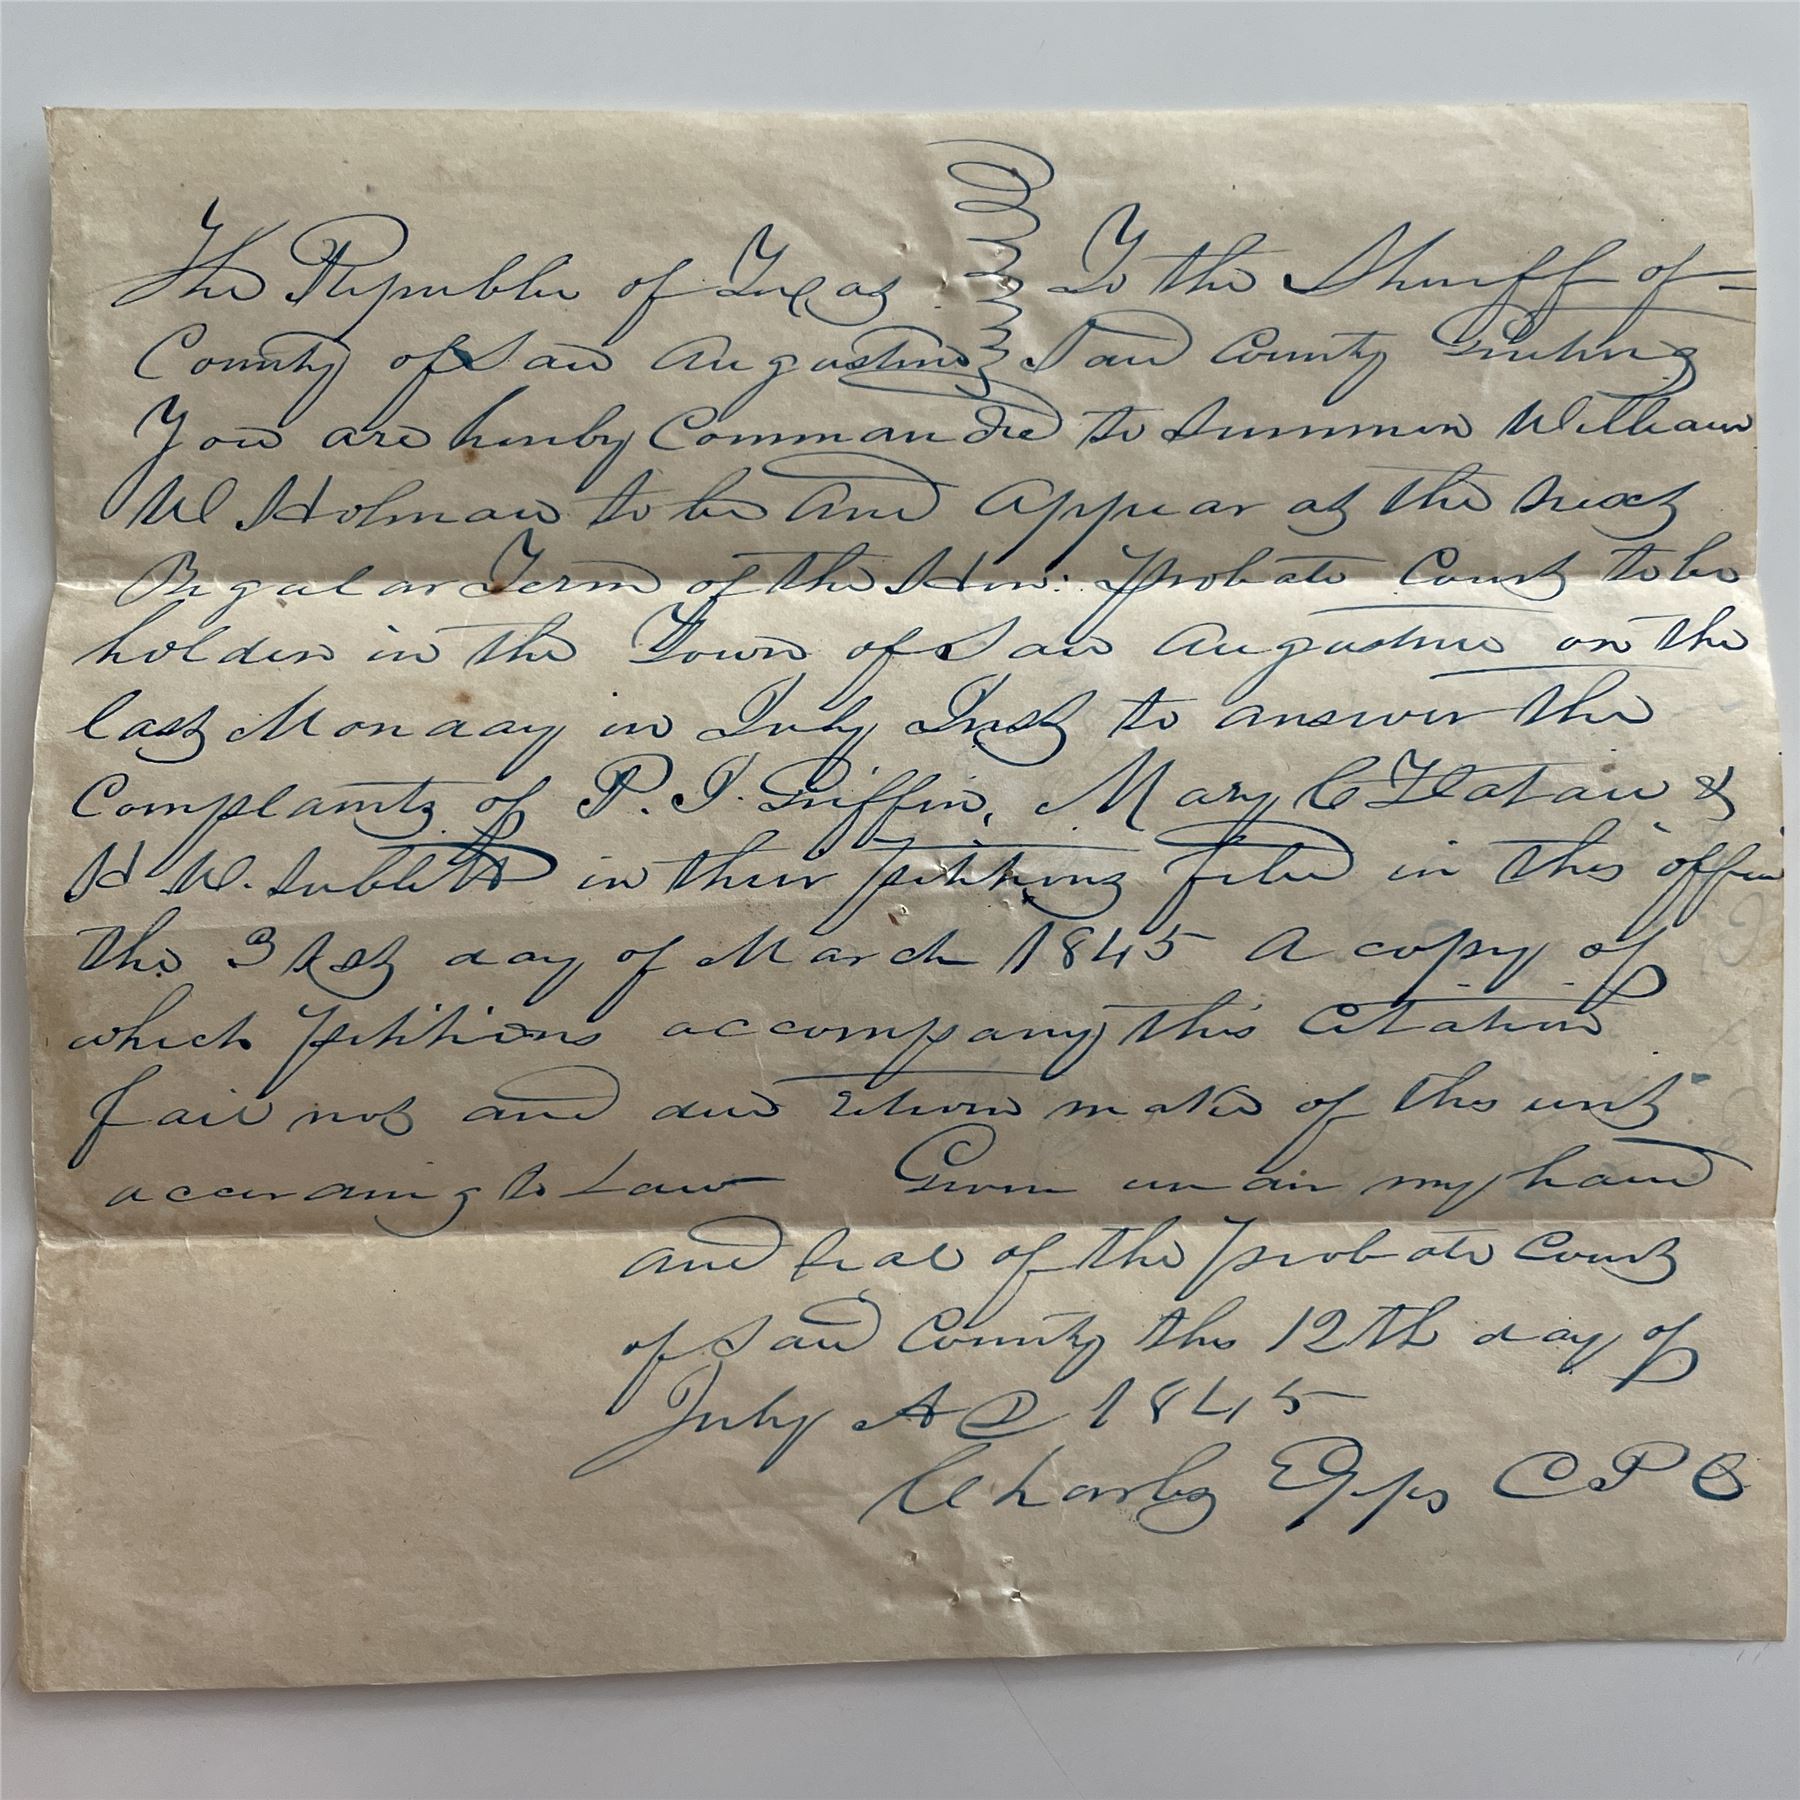 The Republic of Texas To the Sheriff of
County of San Augustine Said County Greeting
You are hereby Commanded to summon William
W Holman to be and appear at the next
Regular Term of the Hon: Probate Court to be
holden in the Town of San Augustine on the
last Monday in July Inst to answer the
Complaints of P. J. Griffin, Mary C Flatau &
H W. Sublett in their petitions filed in this office
the 31st day of March 1845 A copy of
which petitions accompany this Citation
fail not and due return make of this writ
according to Law Given under my hand
and seal of the Probate Court
of Said County this 12th day of
July AD 1845
Charles Epps C P C